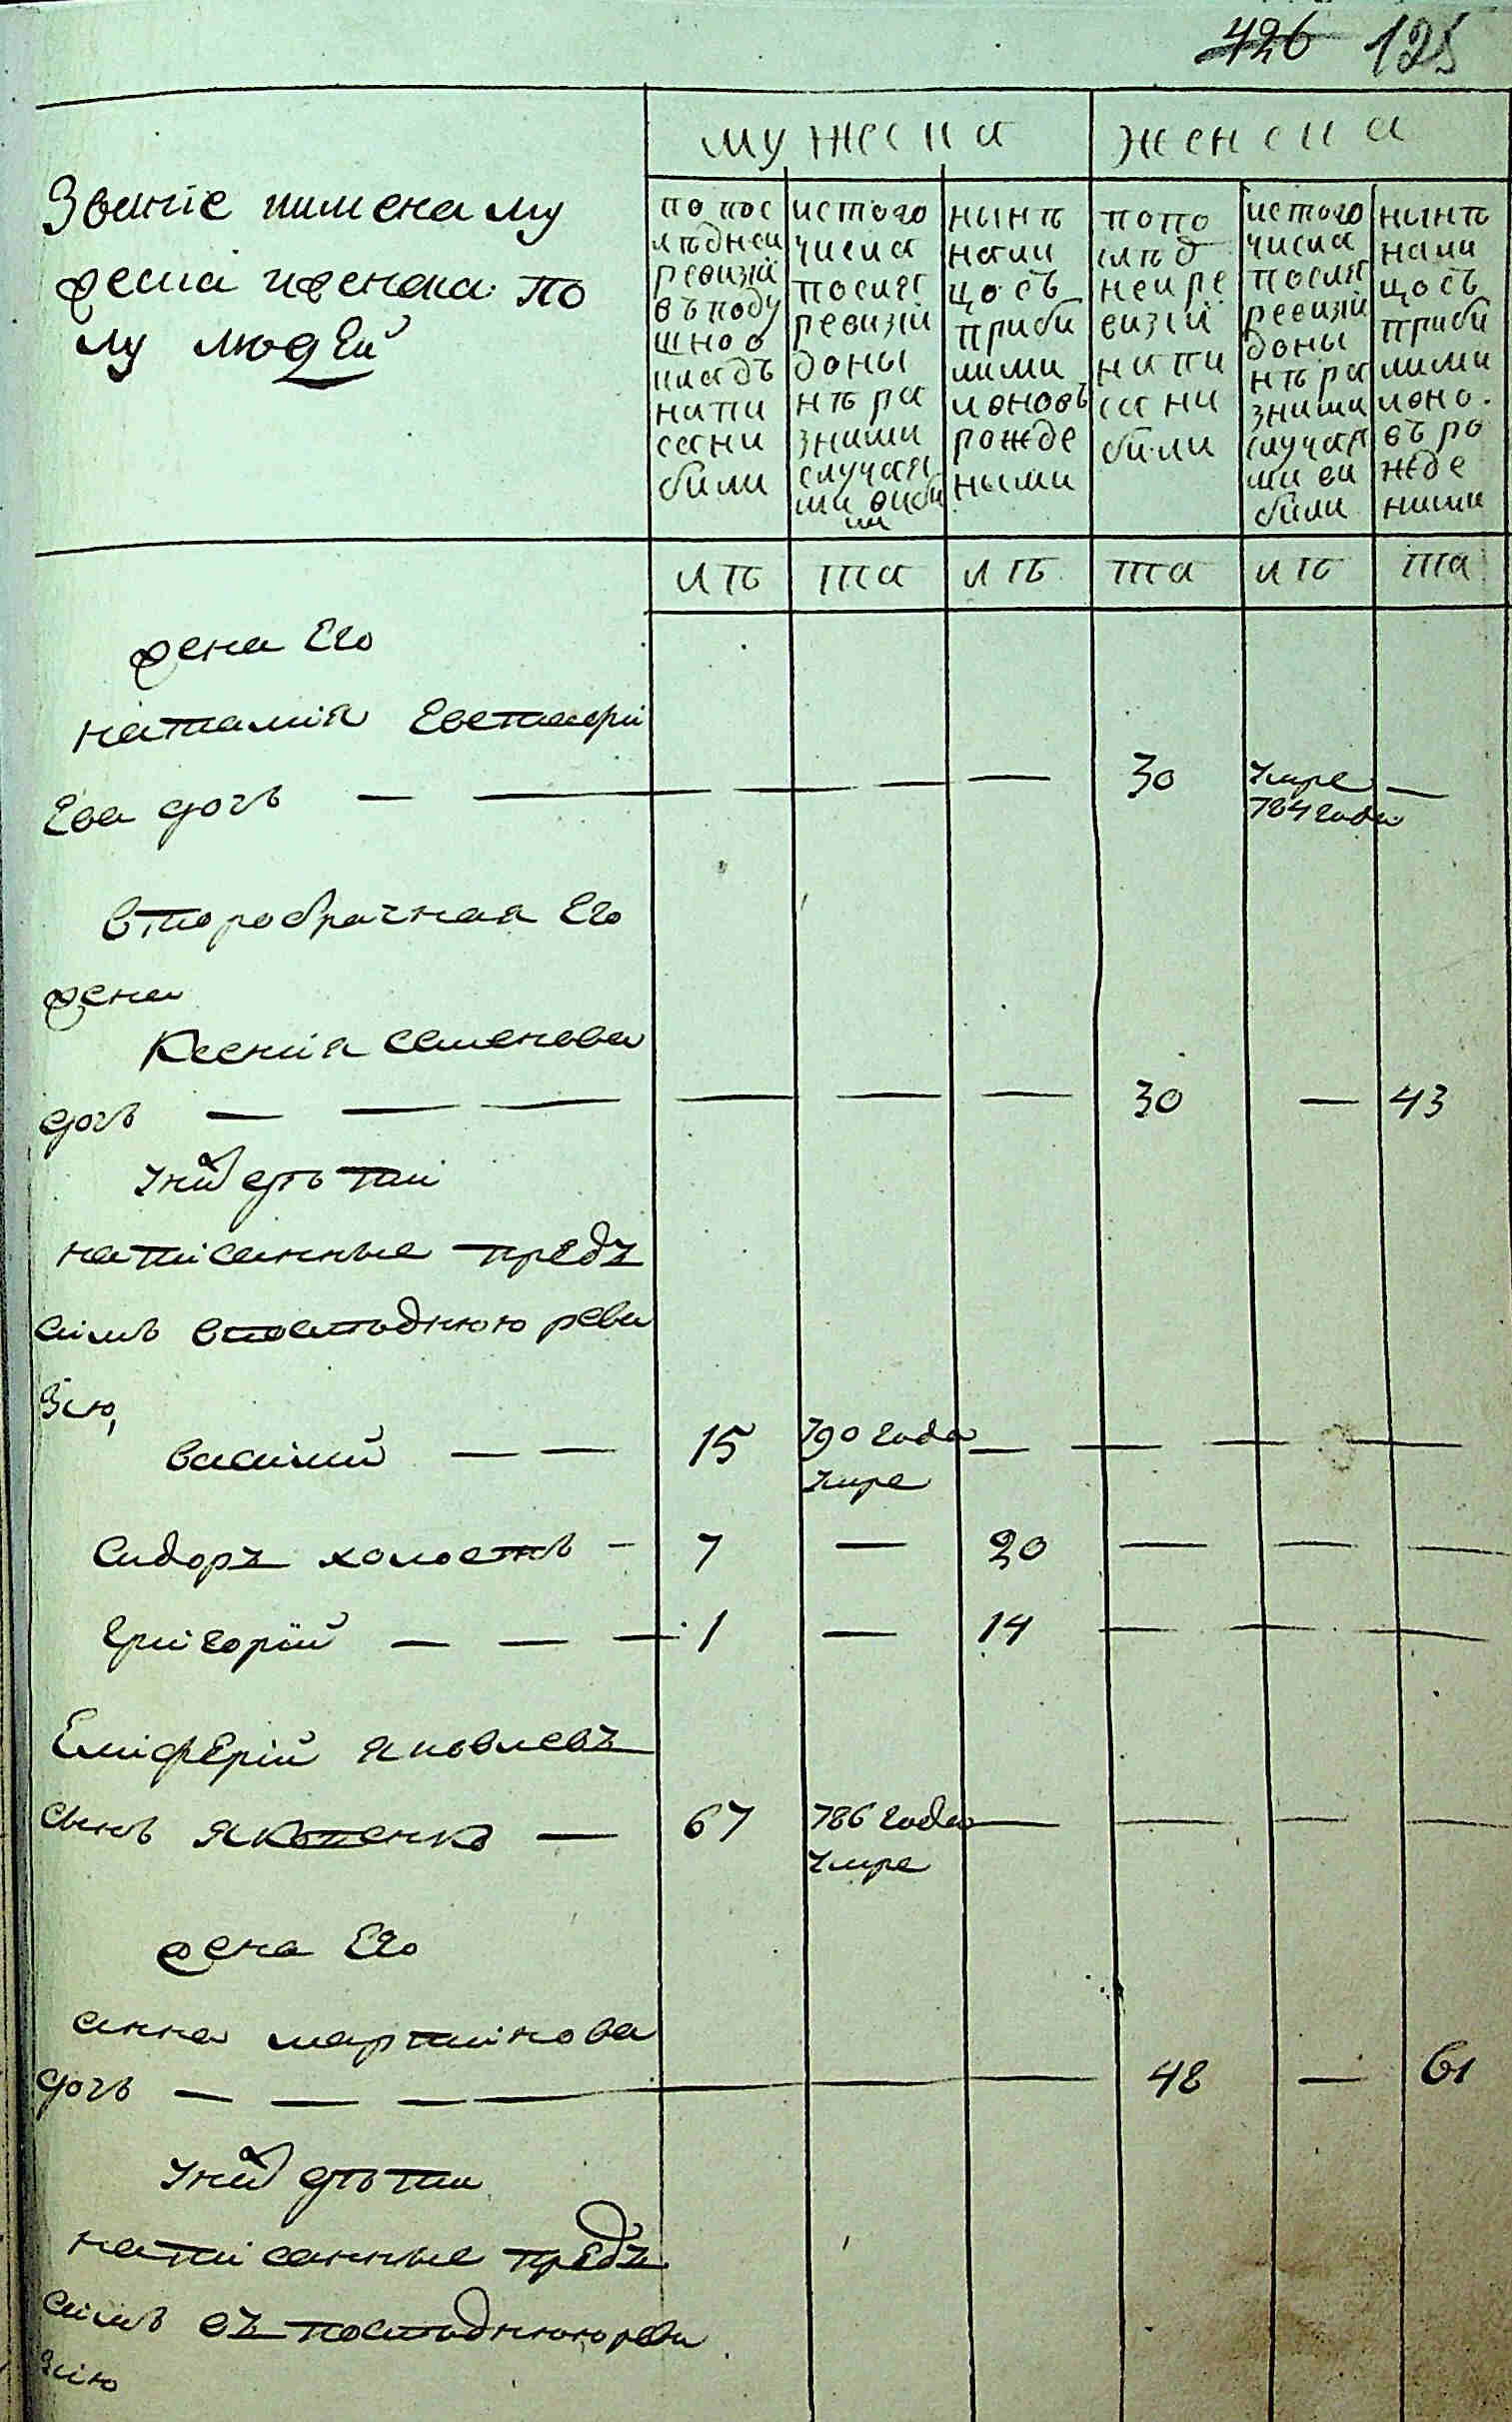 426 125
мужеска женска
Званїе иимена му
жеска иженска по
лу людей
по пос
лѣдней
ревизїи
въ поду
шноо
кладъ
напи
сани
били
истого
числа
послѣ
ревизїи
доны
нѣ ра
зними
случая
ми виби
ли
нынѣ
нали
цо съ
приби
лими
иеновъ
рожде
ными
попо
слѣд
неи ре
визїи
напи
сани
били
истого
числа
послѣ
ревизїи
доны
нѣ ра
зними
случая
ми ви
били
нынѣ
нали
цо съ
приби
лими
иено
въ ро
жде
ними
лѣ та лѣ та лѣ та
жена Его
наталия Евстафи
Ева дочь — — — — — 30 Умре —
784 года
второбрачная Его
жена
Ксения семенова
дочь — — — — — — 30 — 43
Унихъ дѣти
написанные предъ
симъ впослѣднюю реви
зию,
василий — — 15 790 года — — — —
умре
Сидоръ холостъ — 7 — 20 — — —
григорїй — — — 1 — 14 — — —
Елиферїй яковлевъ
сынъ якопенко — 67 786 года — — — —
Умре
жена Его
анна мартинова
дочь — — — — — — 48 — 61
Унихъ дѣти
написанные предъ
симъ въ послѣднюю реви
зию